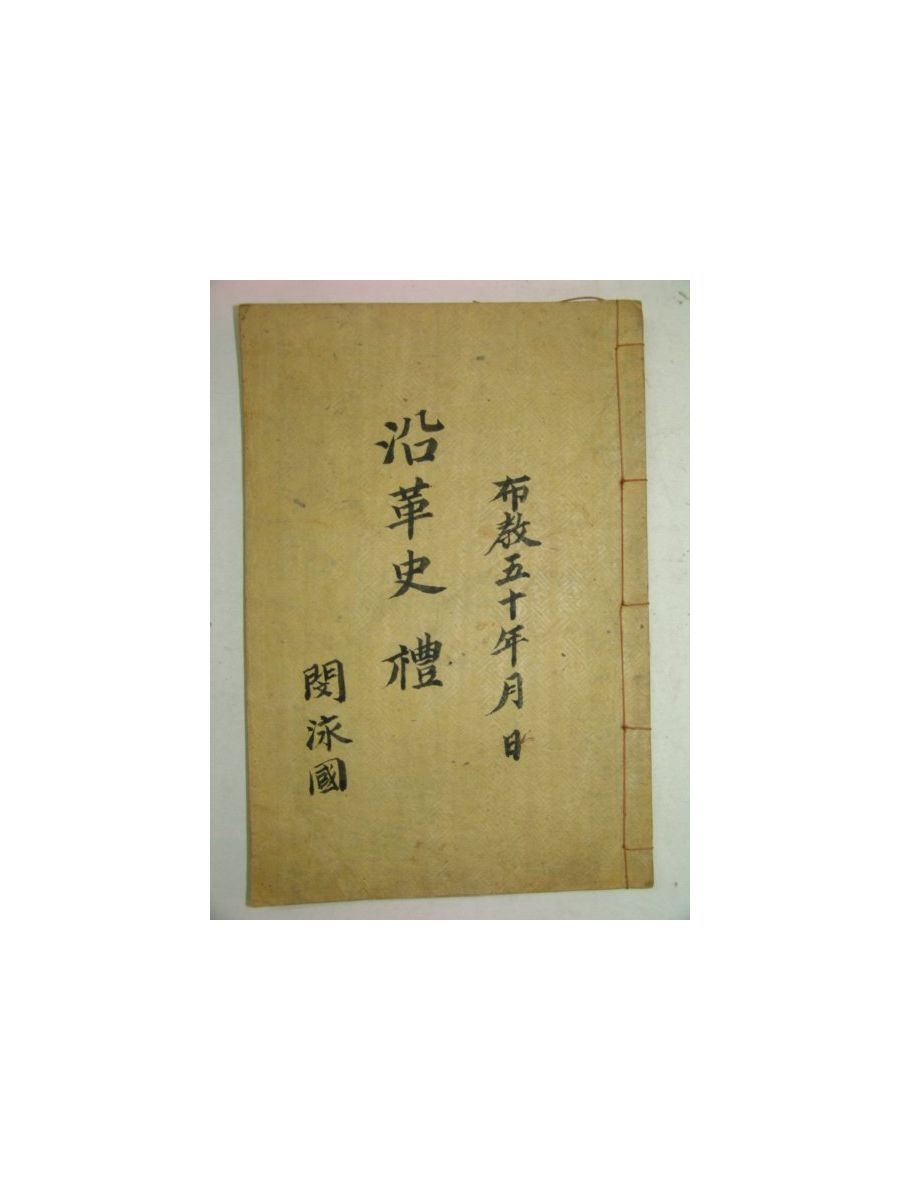 布教五十年月 日
沿革史 禮
閔泳國